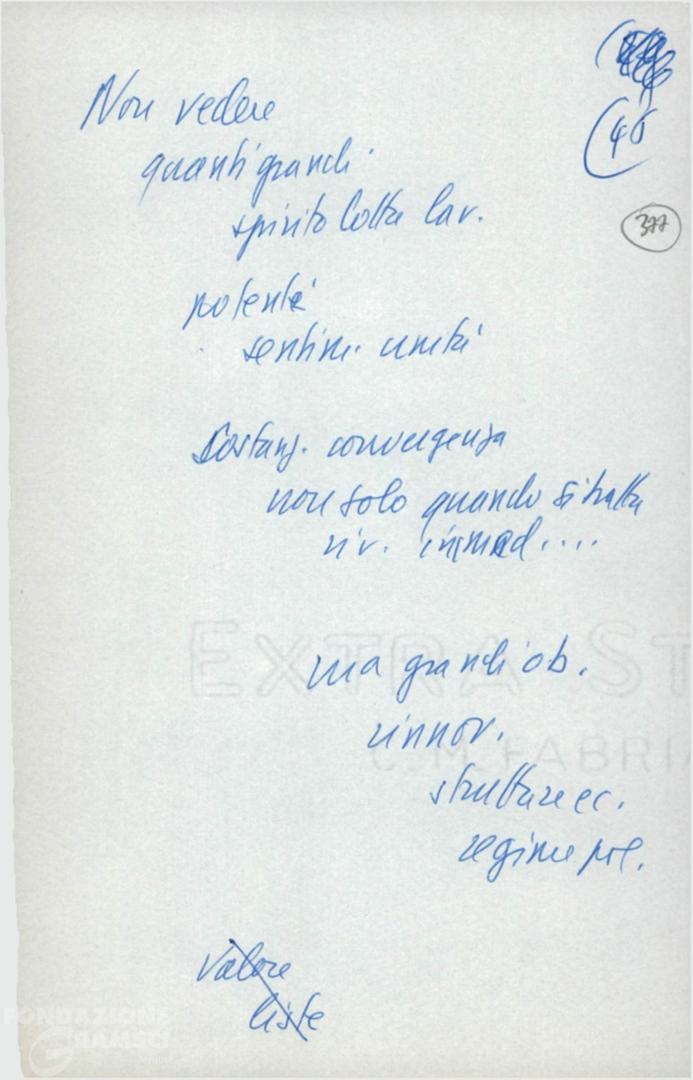 (46
377
Non vedere
quanti grandi
spirito lotta lav.
potente
sentim. unità
Sostanz. convergenza
non solo quando si tratta
riv. immed....
ma grandi ob.
rinnov.
strutture ec.
regime pol.
Valore
liste
EXTRA ST
C.M. FABRIA
FONDAZIONE
GRAMSCI